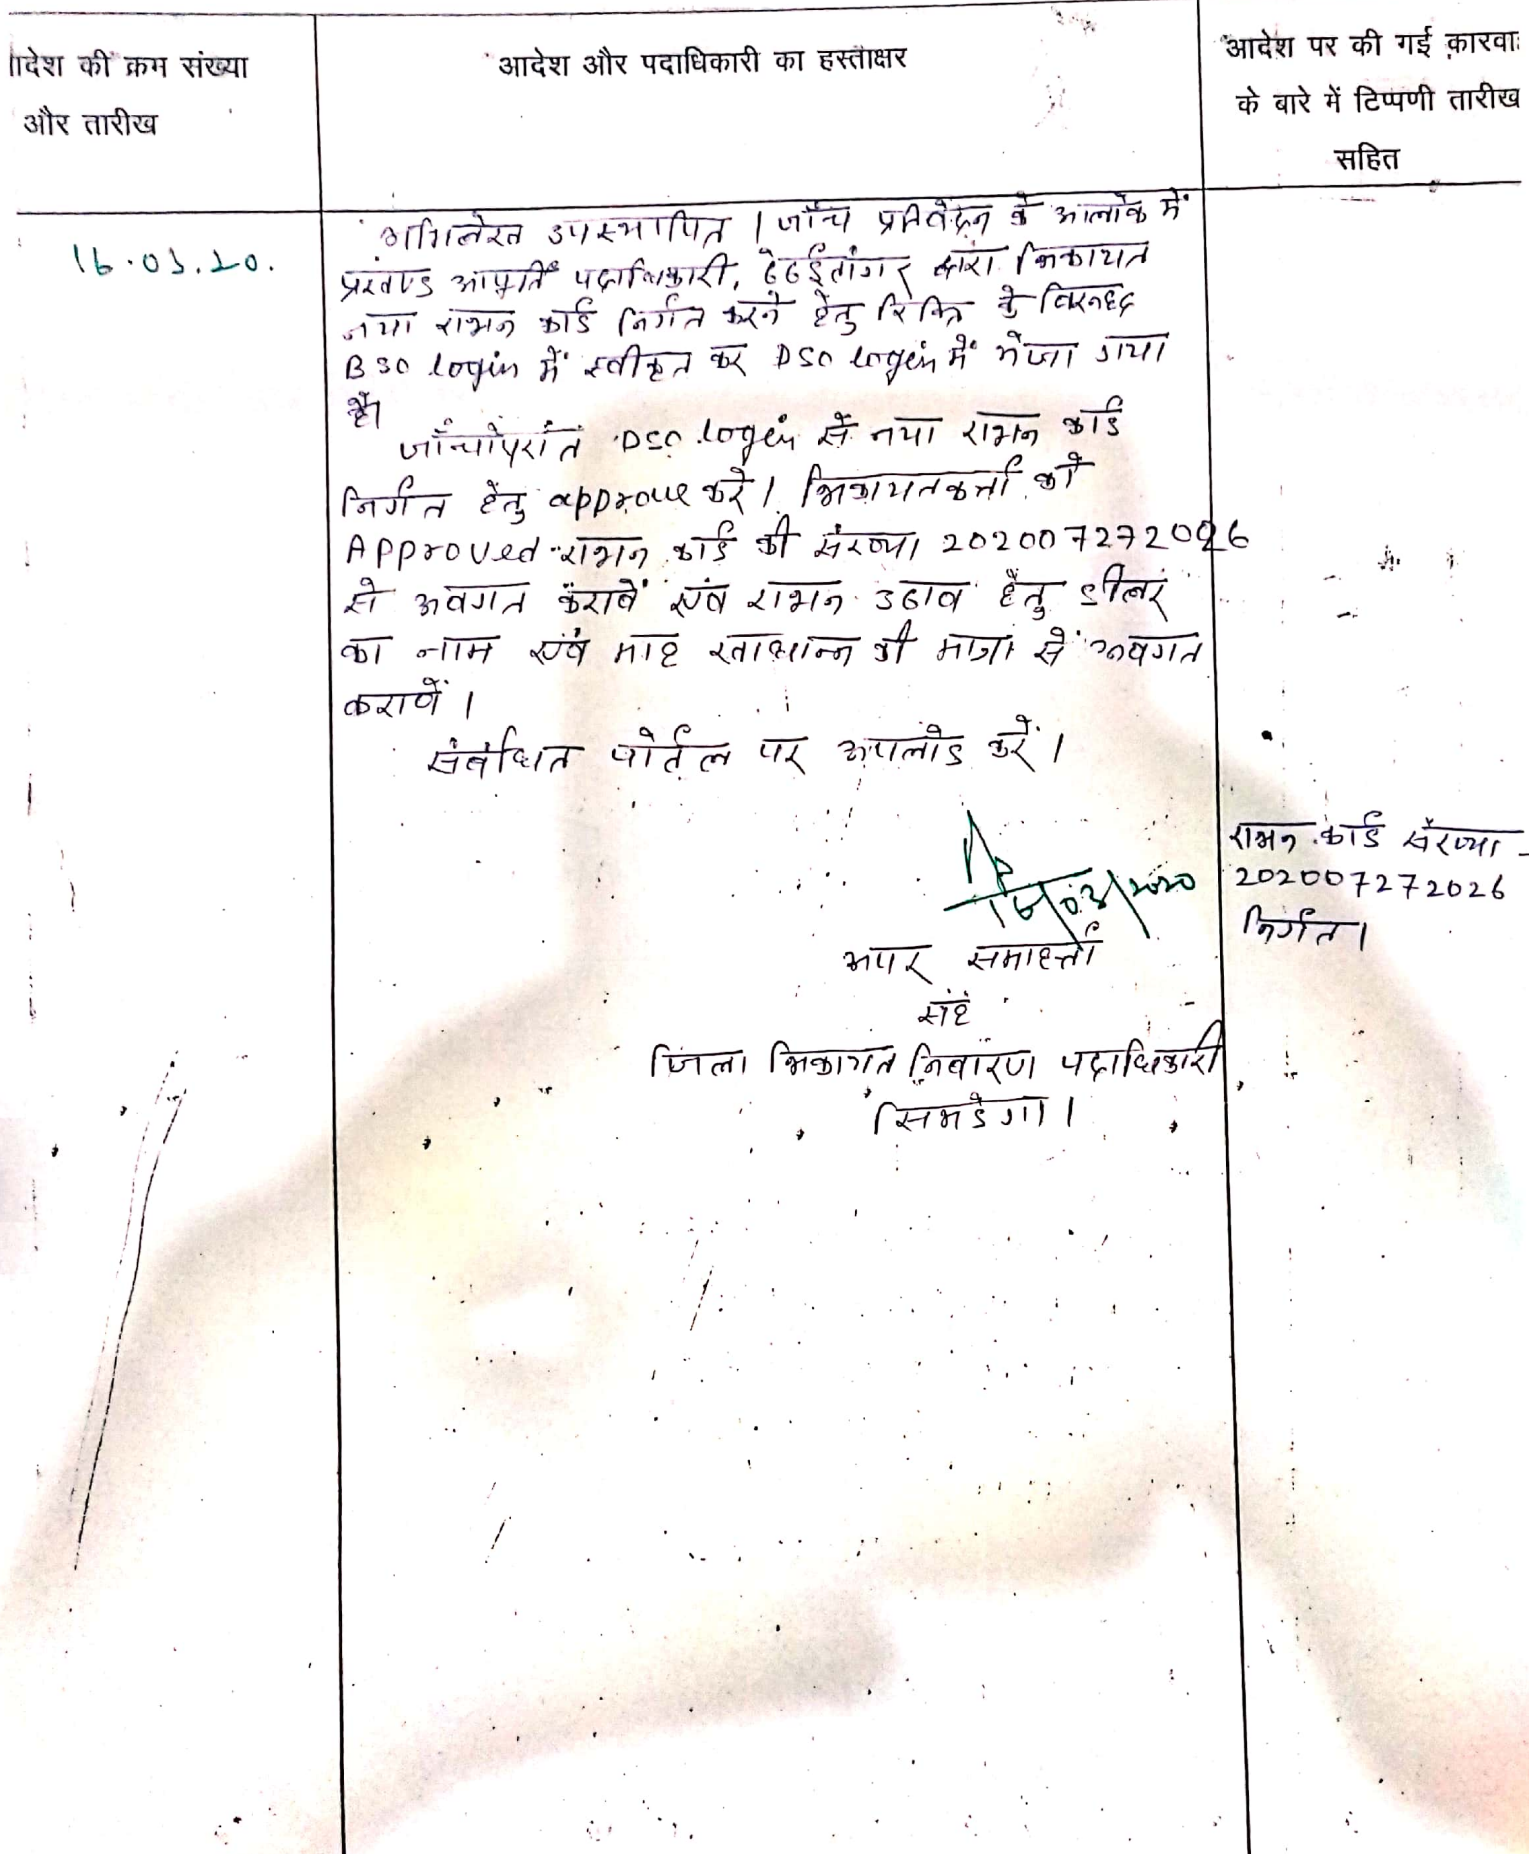 ादेश की क्रम संख्या
और तारीख
आदेश और पदाधिकारी का हस्ताक्षर
आदेश पर की गई कारवा
के बारे में टिप्पणी तारीख
सहित
16.03.20.
अभिलेख उपस्थापित । जाँच प्रतिवेदन के आलोक में
प्रखण्ड आपूर्ति पदाधिकारी, ठेठईटांगर द्वारा शिकायत
नया राशन कार्ड निर्गत करने हेतु रिक्ति के विरूद्ध
BSO login में स्वीकृत कर DSO login में भेजा गया
है।
जाँचोपरांत DSO login से नया राशन कार्ड
निर्गत हेतु approve करें। शिकायतकर्त्ता को
Approved राशन कार्ड की संख्या 202007272026
से अवगत करावें एवं राशन उठाव हेतु डीलर
का नाम एवं माह खाद्यान्न की मात्रा से अवगत
करावें ।
संबंधित पोर्टल पर अपलोड करें ।
16/03/2020
अपर समाहर्त्ता
सह
जिला शिकायत निवारण पदाधिकारी
सिमडेगा ।
राशन कार्ड संख्या -
202007272026
निर्गत ।